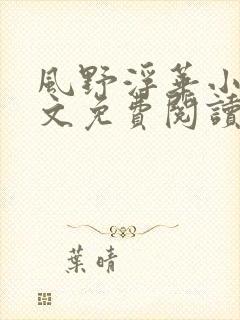 風野浮華小
文免費閱讀
葉晴